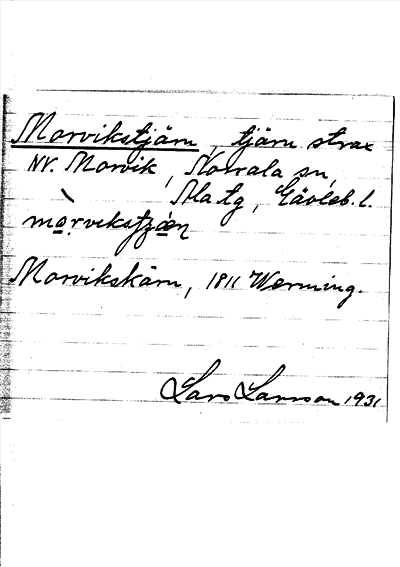 Morvikstjärn, tjärn strax
NV. Morvik, Norrala sn,
Ala tg, Gävleb. l.
mo̲rvikstjä̲n
Morvikskärn, 1811 Werming.
Lars Larsson 1931